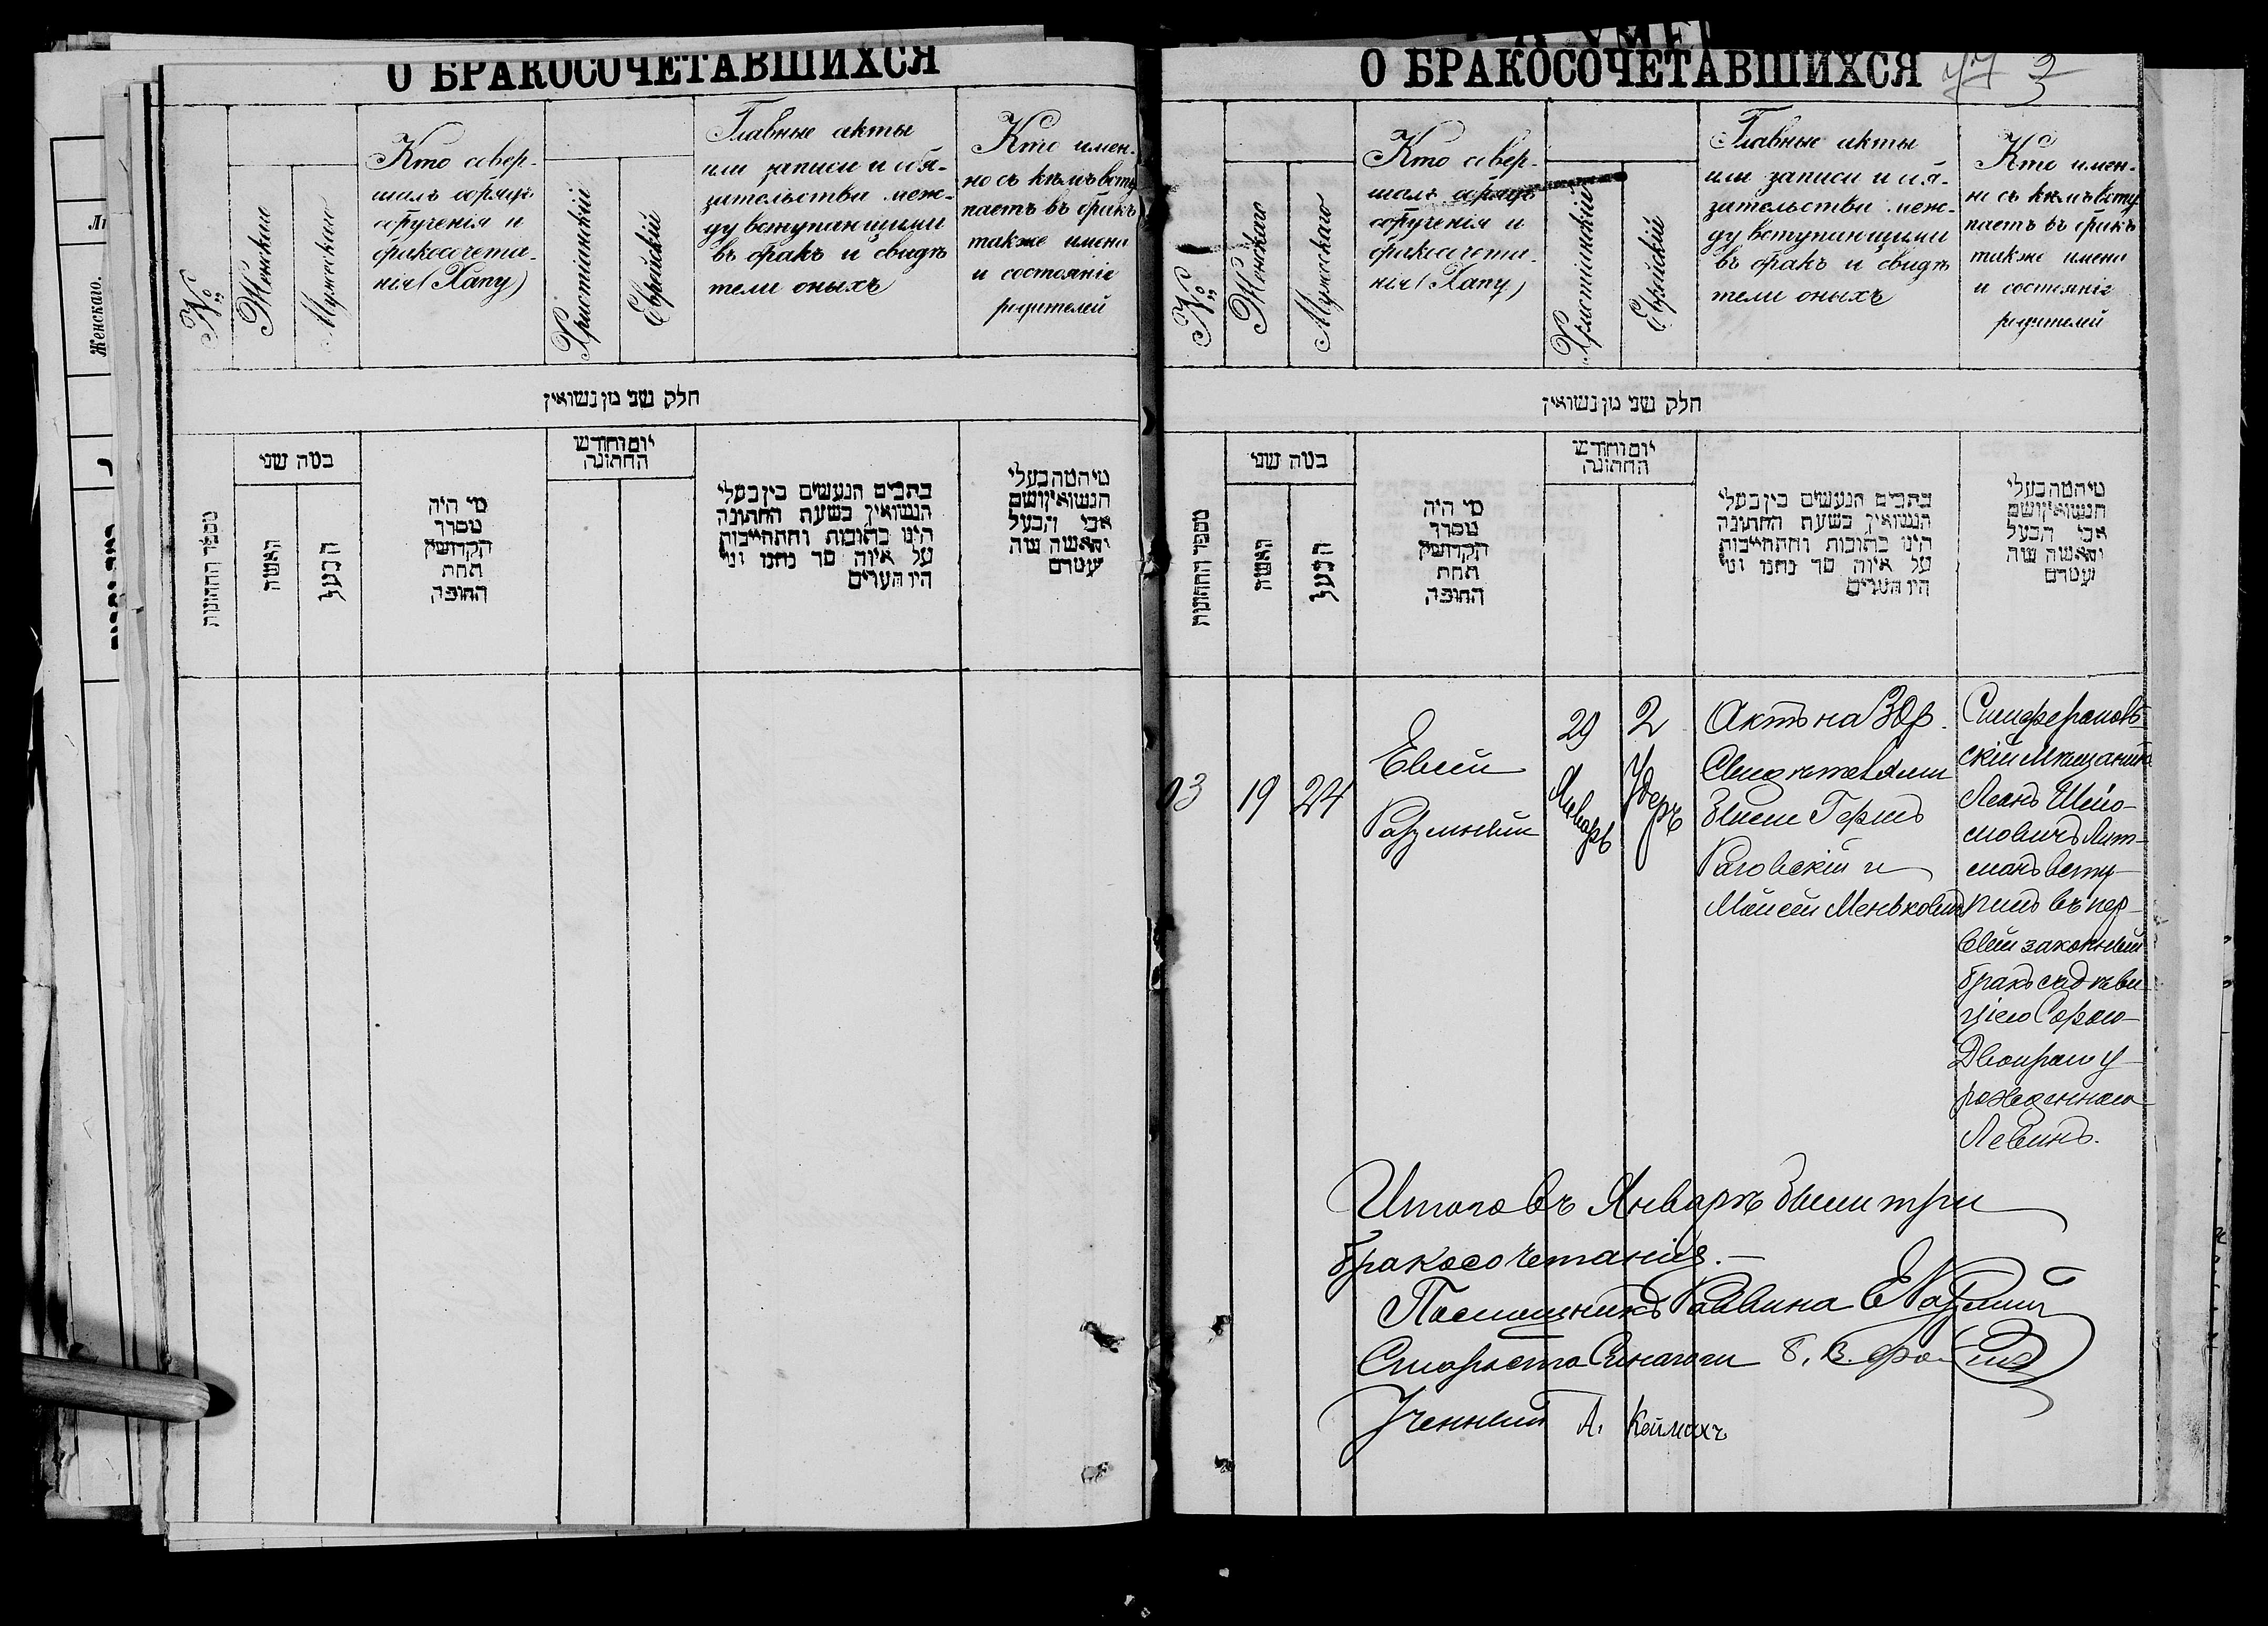 О БРАКОСОЧЕТАВШИХСЯ
№
Женскаго
Мужескаго
Кто совер-
шалъ обрядъ
обрученія и
бракосочета-
нія (Хапу)
Христіанскій
Еврейскій
Главные акты
или записи и обя-
зательства меж-
ду вступающими
въ бракъ и свидѣ
тели оныхъ
Кто имен-
но съ кѣмъ всту
паетъ въ бракъ
также имена
и состояніе
родителей
חלק שני מן נשואין
מספר החתונות
כמה שני
האשה
הבעל
מי היה
מסדר
הקדושין
תחת
החופה
יום וחודש
החתונה
כתבים הנעשים בין בעלי
הנשואין בשעת החתונה
היינו כתובות והתחייבות
על איזה סך נתנו ומי
היו העדים
מי המה בעלי
הנשואין ושם
אבי הבעל
והאשה ומה
Женскаго.
О БРАКОСОЧЕТАВШИХСЯ
3
№
Женскаго
Мужескаго
Кто совер-
шалъ обрядъ
обрученія и
бракосочета-
нія (Хапу)
Христіанскій
Еврейскій
Главные акты
или записи и обя-
зательства меж-
ду вступающими
въ бракъ и свидѣ
тели оныхъ
Кто имен-
но съ кѣмъ всту
паетъ въ бракъ
также имена
и состояніе
родителей
חלק שני מן נשואין
מספר החתונות
כמה שני
האשה
הבעל
מי היה
מסדר
הקדושין
תחת
החופה
יום וחודש
החתונה
כתבים הנעשים בין בעלי
הנשואין בשעת החתונה
היינו כתובות והתחייבות
על איזה סך נתנו ומי
היו העדים
מי המה בעלי
הנשואין ושם
אבי הבעל
והאשה ומה
3
19
24
Евсей
Разумный
29
Январь
2
Акть на 30 р.
Свидѣтелями
были Герша
Раговскій и
Моисей Меньковичъ
Симферополь
скій Мѣщанинъ
Леонъ
мовичъ Лит-
манъ всту-
пилъ въ пер-
вый законный
бракъ съ дѣви
цею Сорою-
Двойрою у-
рожденною
Левинъ.
Итого въ Январѣ были три
бракосочетанія.
Помощникъ Раввина Е Разумный
Староста Синагоги
Ученный А. Каймахъ